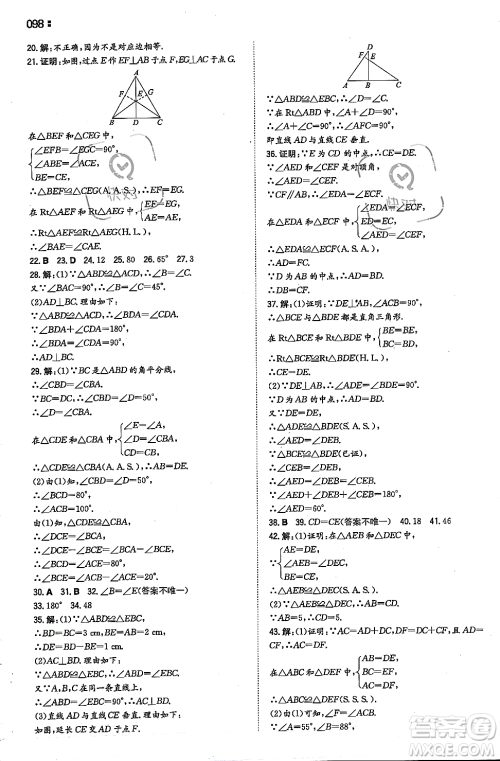 098
20. 解:不正确,因为不是对应边相等.
21. 证明:如图,过点 E 作 EF⊥AB 于点 F,EG⊥AC 于点 G.
A
F E G
B D C
在△BEF 和△CEG 中,
∠EFB=∠EGC=90°,
∠ABE=∠ACE,
BE=CE,
∴△BEF≌△CEG(A. A. S.),∴EF=EG.
在 Rt△AEF 和 Rt△AEG 中,
AE=AE,
EF=EG,
∴Rt△AEF≌Rt△AEG(H. L.),
∴∠BAE=∠CAE.
22. B 23. D 24. 12 25. 80 26. 65° 27. 3
28. 解:(1)∵△ABD≌△ACD,∴∠B=∠C=45°.
(2)AD⊥BC. 理由如下:
∵△ABD≌△ACD,∴∠BDA=∠CDA.
∵∠BDA+∠CDA=180°,
∴∠BDA=∠CDA=90°,
∴AD⊥BC.
29. 解:(1)∵BC 是∠ABD 的角平分线,
∴∠CBD=∠CBA.
∵BC=DC,∴∠CBD=∠D=50°,
∴∠CBA=∠D.
在△CDE 和△CBA 中,
∠E=∠A,
∠D=∠CBA,
DC=BC,
∴△CDE≌△CBA(A. A. S.),∴AB=DE.
(2)∵∠CBD=∠D=50°,
∴∠BCD=80°,
∴∠ACB=100°.
由(1)知,△CDE≌△CBA,
∴∠DCE=∠ACB=100°,
∴∠BCE=∠DCE-∠BCD=20°.
30. A 31. B 32. ∠C=∠E(答案不唯一)
33. 180° 34. 48
35. 解:(1)∵△ABD≌△EBC,
∴BD=BC=3 cm,BE=AB=2 cm,
∴DE=BD-BE=1 cm.
(2)AC⊥BD. 理由如下:
∵△ABD≌△EBC,∴∠ABD=∠EBC.
又∵点 A,B,C 在同一条直线上,
∴∠EBC=90°,∴AC⊥BD.
(3)直线 AD 与直线 CE 垂直. 理由如下:
如图,延长 CE 交 AD 于点 F.
D
F
E
A B C
∵△ABD≌△EBC,∴∠D=∠C.
∵在 Rt△ABD 中,∠A+∠D=90°,
∴∠A+∠C=90°,∴∠AFC=90°,
即直线 AD 与直线 CE 垂直.
36. 证明:∵E 为 CD 的中点,∴CE=DE.
∵∠AED 和∠CEF 是对顶角,
∴∠AED=∠CEF.
∵CF∥AB,∴∠EDA=∠ECF.
在△EDA 和△ECF 中,
∠EDA=∠ECF,
ED=EC,
∠AED=∠CEF,
∴△EDA≌△ECF(A. S. A.),
∴AD=FC.
∵D 为 AB 的中点,∴AD=BD.
∴DB=CF.
37. 解:(1)证明:∵DE⊥AB,∠ACB=90°,
∴△BCE 与△BDE 都是直角三角形.
在 Rt△BCE 与 Rt△BDE 中,
BE=BE,
BC=BD,
∴Rt△BCE≌Rt△BDE(H. L.),
∴CE=DE.
(2)∵DE⊥AB,∴∠ADE=∠BDE=90°.
∵D 为 AB 的中点,∴AD=BD.
又∵DE=DE,∴△ADE≌△BDE(S. A. S.),
∴∠AED=∠DEB.
∵△BCE≌△BDE(已证),
∴∠CEB=∠DEB,
∴∠AED=∠DEB=∠CEB.
∵∠AED+∠DEB+∠CEB=180°,
∴∠AED=60°.
38. B 39. CD=CE(答案不唯一) 40. 18 41. 46
42. 解:(1)证明:在△AEB 和△DEC 中,
AE=DE,
AB=DC,
BE=CE,
∴△AEB≌△DEC(S. S. S.).
(2)∵△AEB≌△DEC,∴AB=CD.
∵AB=5,∴CD=5.
43. 解:(1)证明:∵AC=AD+DC,DF=DC+CF,
且 AD=CF,∴AC=DF.
在△ABC 和△DEF 中,
AB=DE,
BC=EF,
AC=DF,
∴△ABC≌△DEF(S. S. S.).
(2)由(1)可知,△ABC≌△DEF,
∵∠A=55°,∠B=88°,
作业帮
快对
作业帮
快对
作业精灵